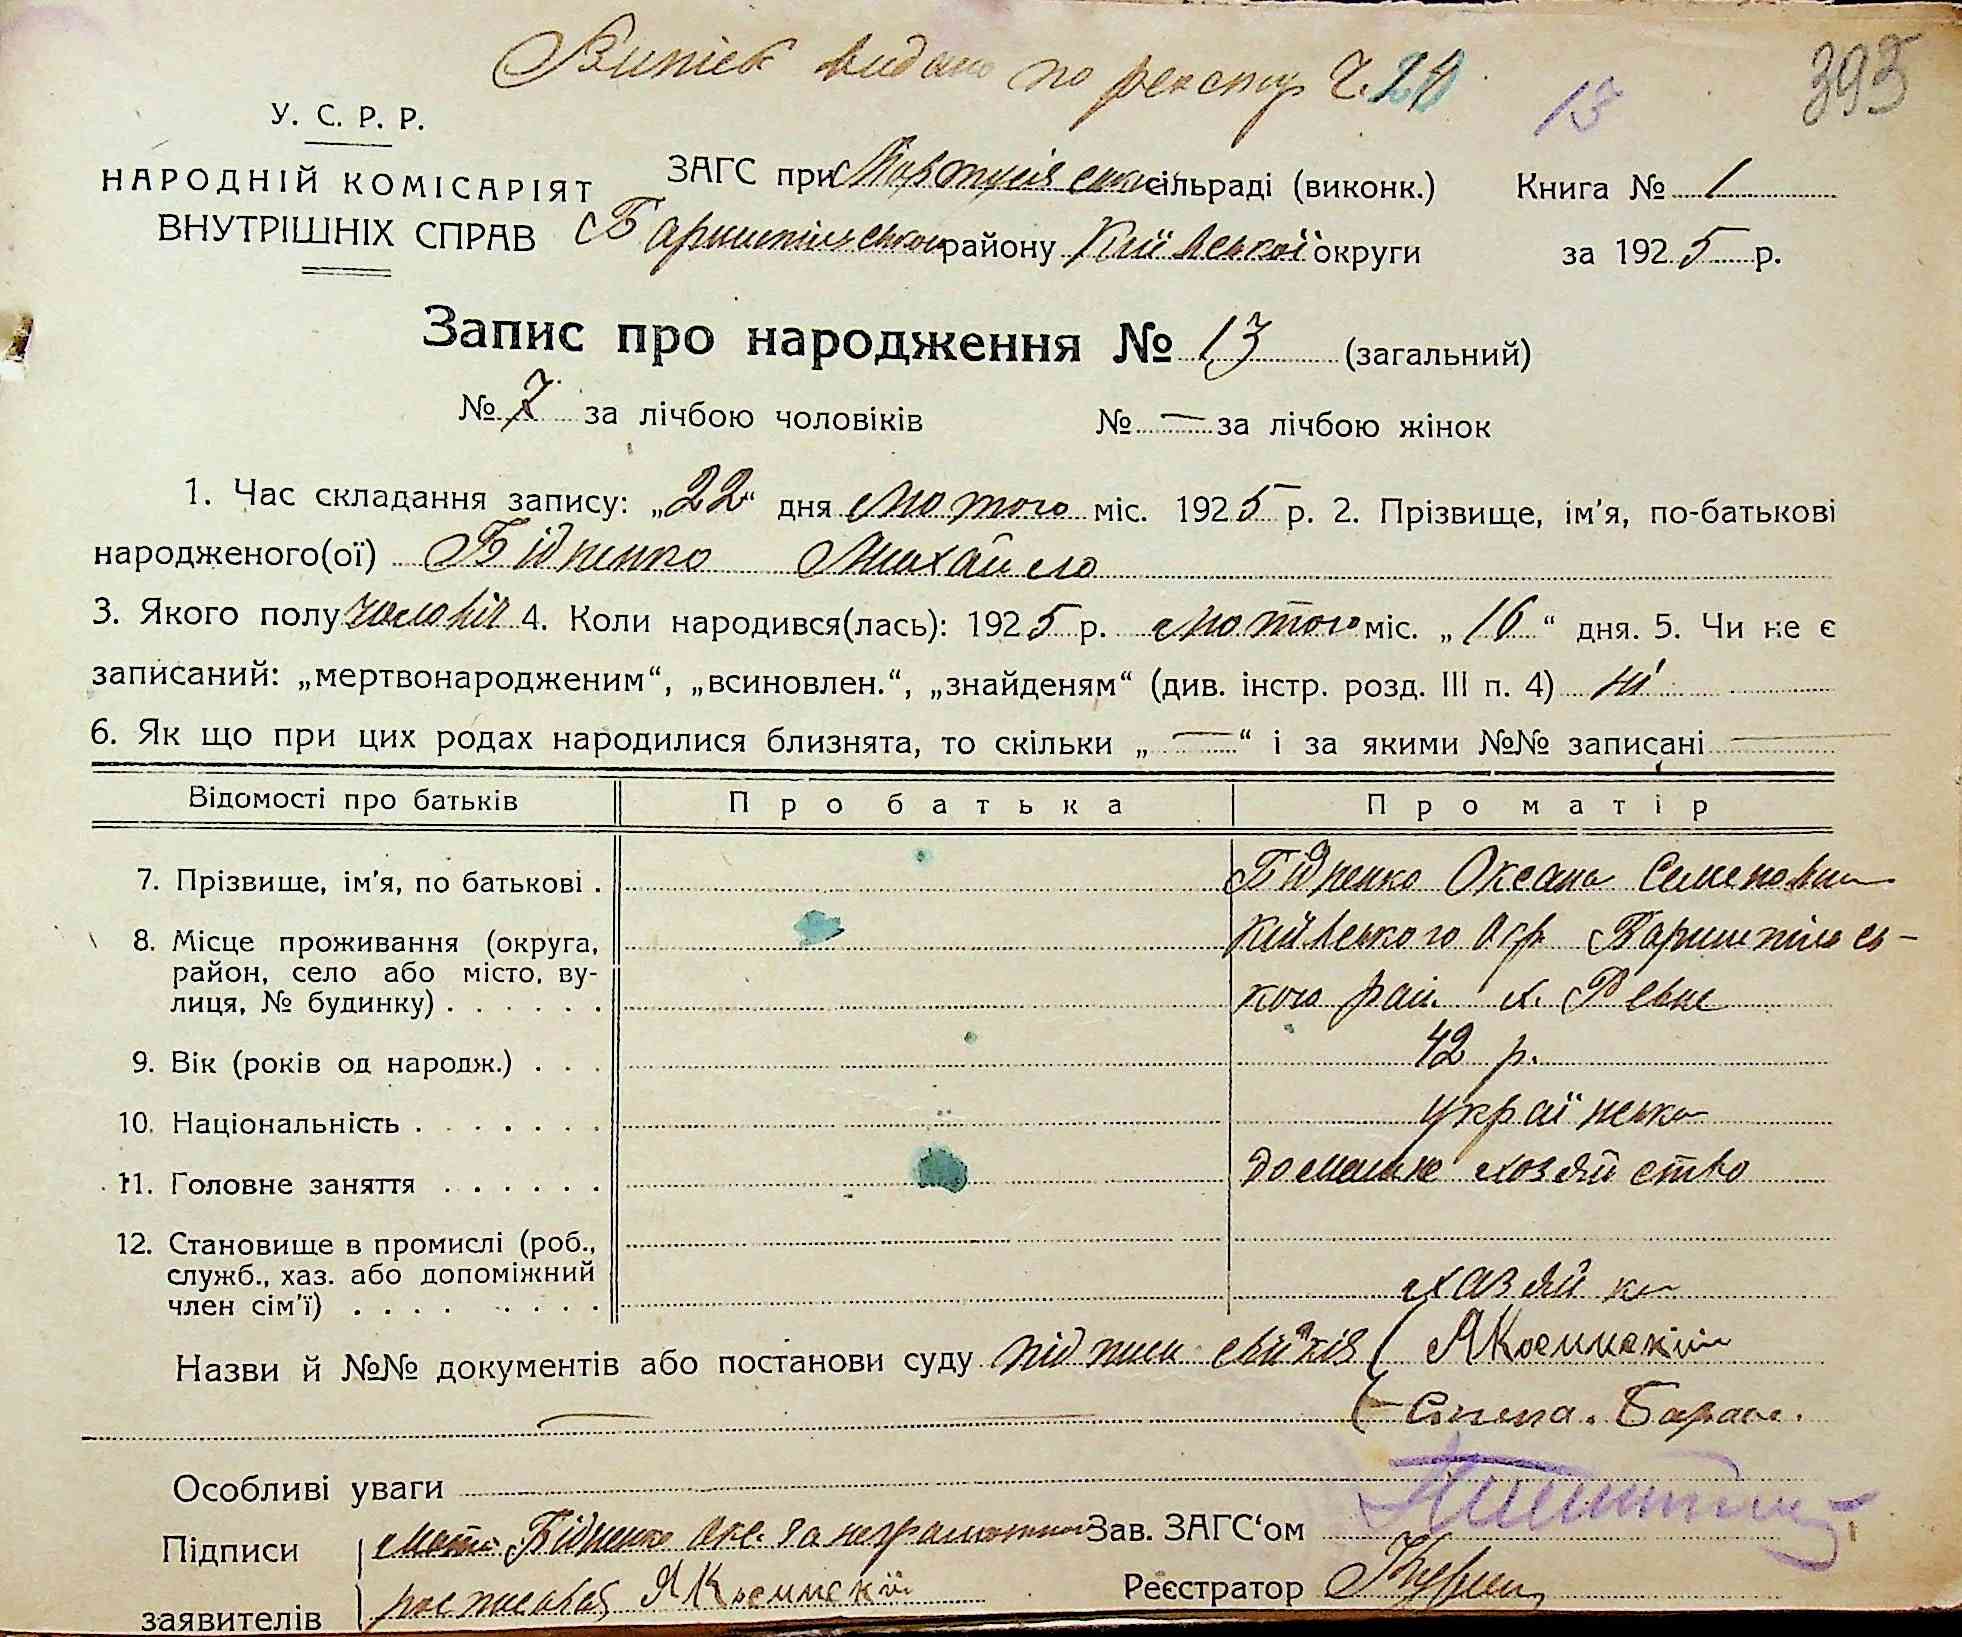 Випіск видано по реєстру Ч. 24
15
395
У. С. Р. Р.
НАРОДНІЙ КОМІСАРІЯТ
ВНУТРІШНІХ СПРАВ
ЗАГС при Мартусівській сільраді (виконк.)
Баришпільського району Київської округи
Книга № 1
за 1925 р.
Запис про народження № 13 (загальний)
№ 7 за лічбою чоловіків № — за лічбою жінок
1. Час складання запису: „22“ дня лютого міс. 1925 р. 2. Прізвище, ім'я, по-батькові
народженого(ої) Бідненко Михайло
3. Якого полу чоловіч 4. Коли народився(лась): 1925 р. лютого міс. „16“ дня. 5. Чи не є
записаний: „мертвонародженим“, „всиновлен.“, „знайденям“ (див. інстр. розд. III п. 4) ні
6. Як що при цих родах народилися близнята, то скільки „—“ і за якими №№ записані —
Відомості про батьків Про батька Про матір
7. Прізвище, ім'я, по батькові . Бідненко Оксана Семеновна
8. Місце проживання (округа, Київського Окр Баришпільсь-
район, село або місто, ву- кого рай. х. Ревне
лиця, № будинку) . . . . . .
9. Вік (років од народж.) . . . 42 р.
10. Національність . . . . . . . українська
11. Головне заняття . . . . . . домашнє хозяйство
12. Становище в промислі (роб.,
служб., хаз. або допоміжний
член сім'ї) . . . . . . . . хазяйка
Назви й №№ документів або постанови суду підписи свідків ( Я Косминский
Степа. Бараб.
Особливі уваги
Підписи мати Бідненко Окс. за неграмотную Зав. ЗАГС‘ом
заявителів росписався Я Косминский Реєстратор